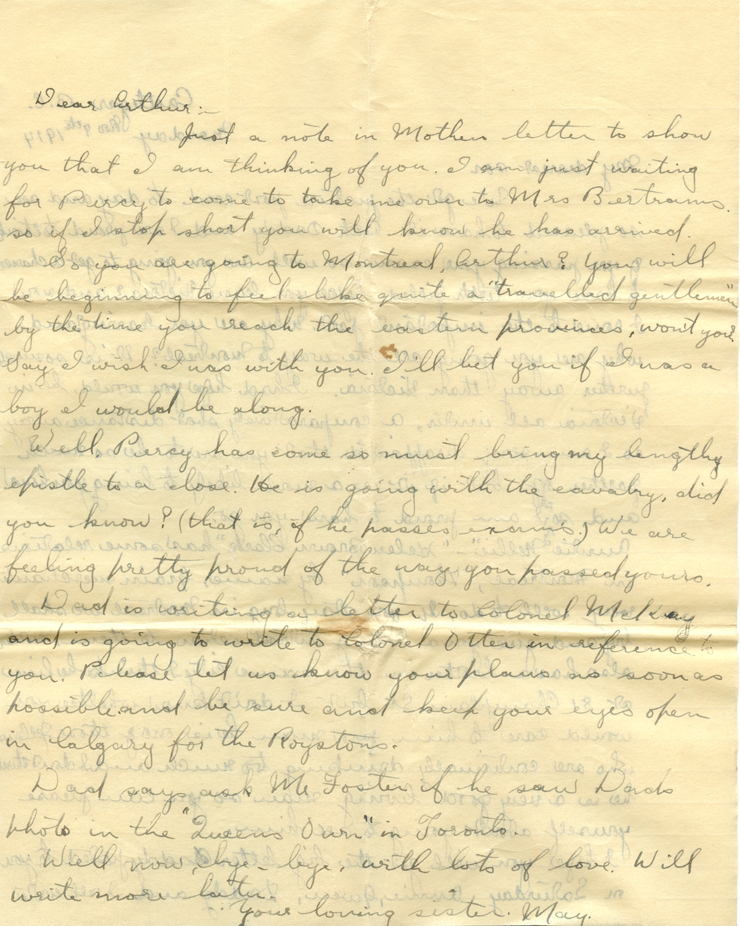 Dear Arthur:-
Just a note in Mothers letter to show
you that I am thinking of you. I am just waiting
for Percy to come to take me over to Mrs Bertrams.
so if I stop short you will know he has arrived.
So you are going to Montreal, Arthur? You will
be beginning to feel like quite a "travelled gentleman"
by the time you reach the eastern provinces, won't you?
Say I wish I was with you. I'll bet you if I was a
boy I would be along.
Well Percy has come so must bring my lengthy
epistle to a close. He is going with the cavalry, did
you know? (that is, if he passes exams.) We are
feeling pretty proud of the way you passed yours.
Dad is writing a letter to Colonel McKay
and is going to write to Colonel Otter in reference to
you. Please let us know your plans as soon as
possible and be sure and keep your eyes open
in Calgary for the Roystons.
Dad says ask Mr Foster if he saw Dads
photo in the "Queens Own" in Toronto.
Well now, bye-bye, with lots of love. Will
write more later.
Your loving sister. May.